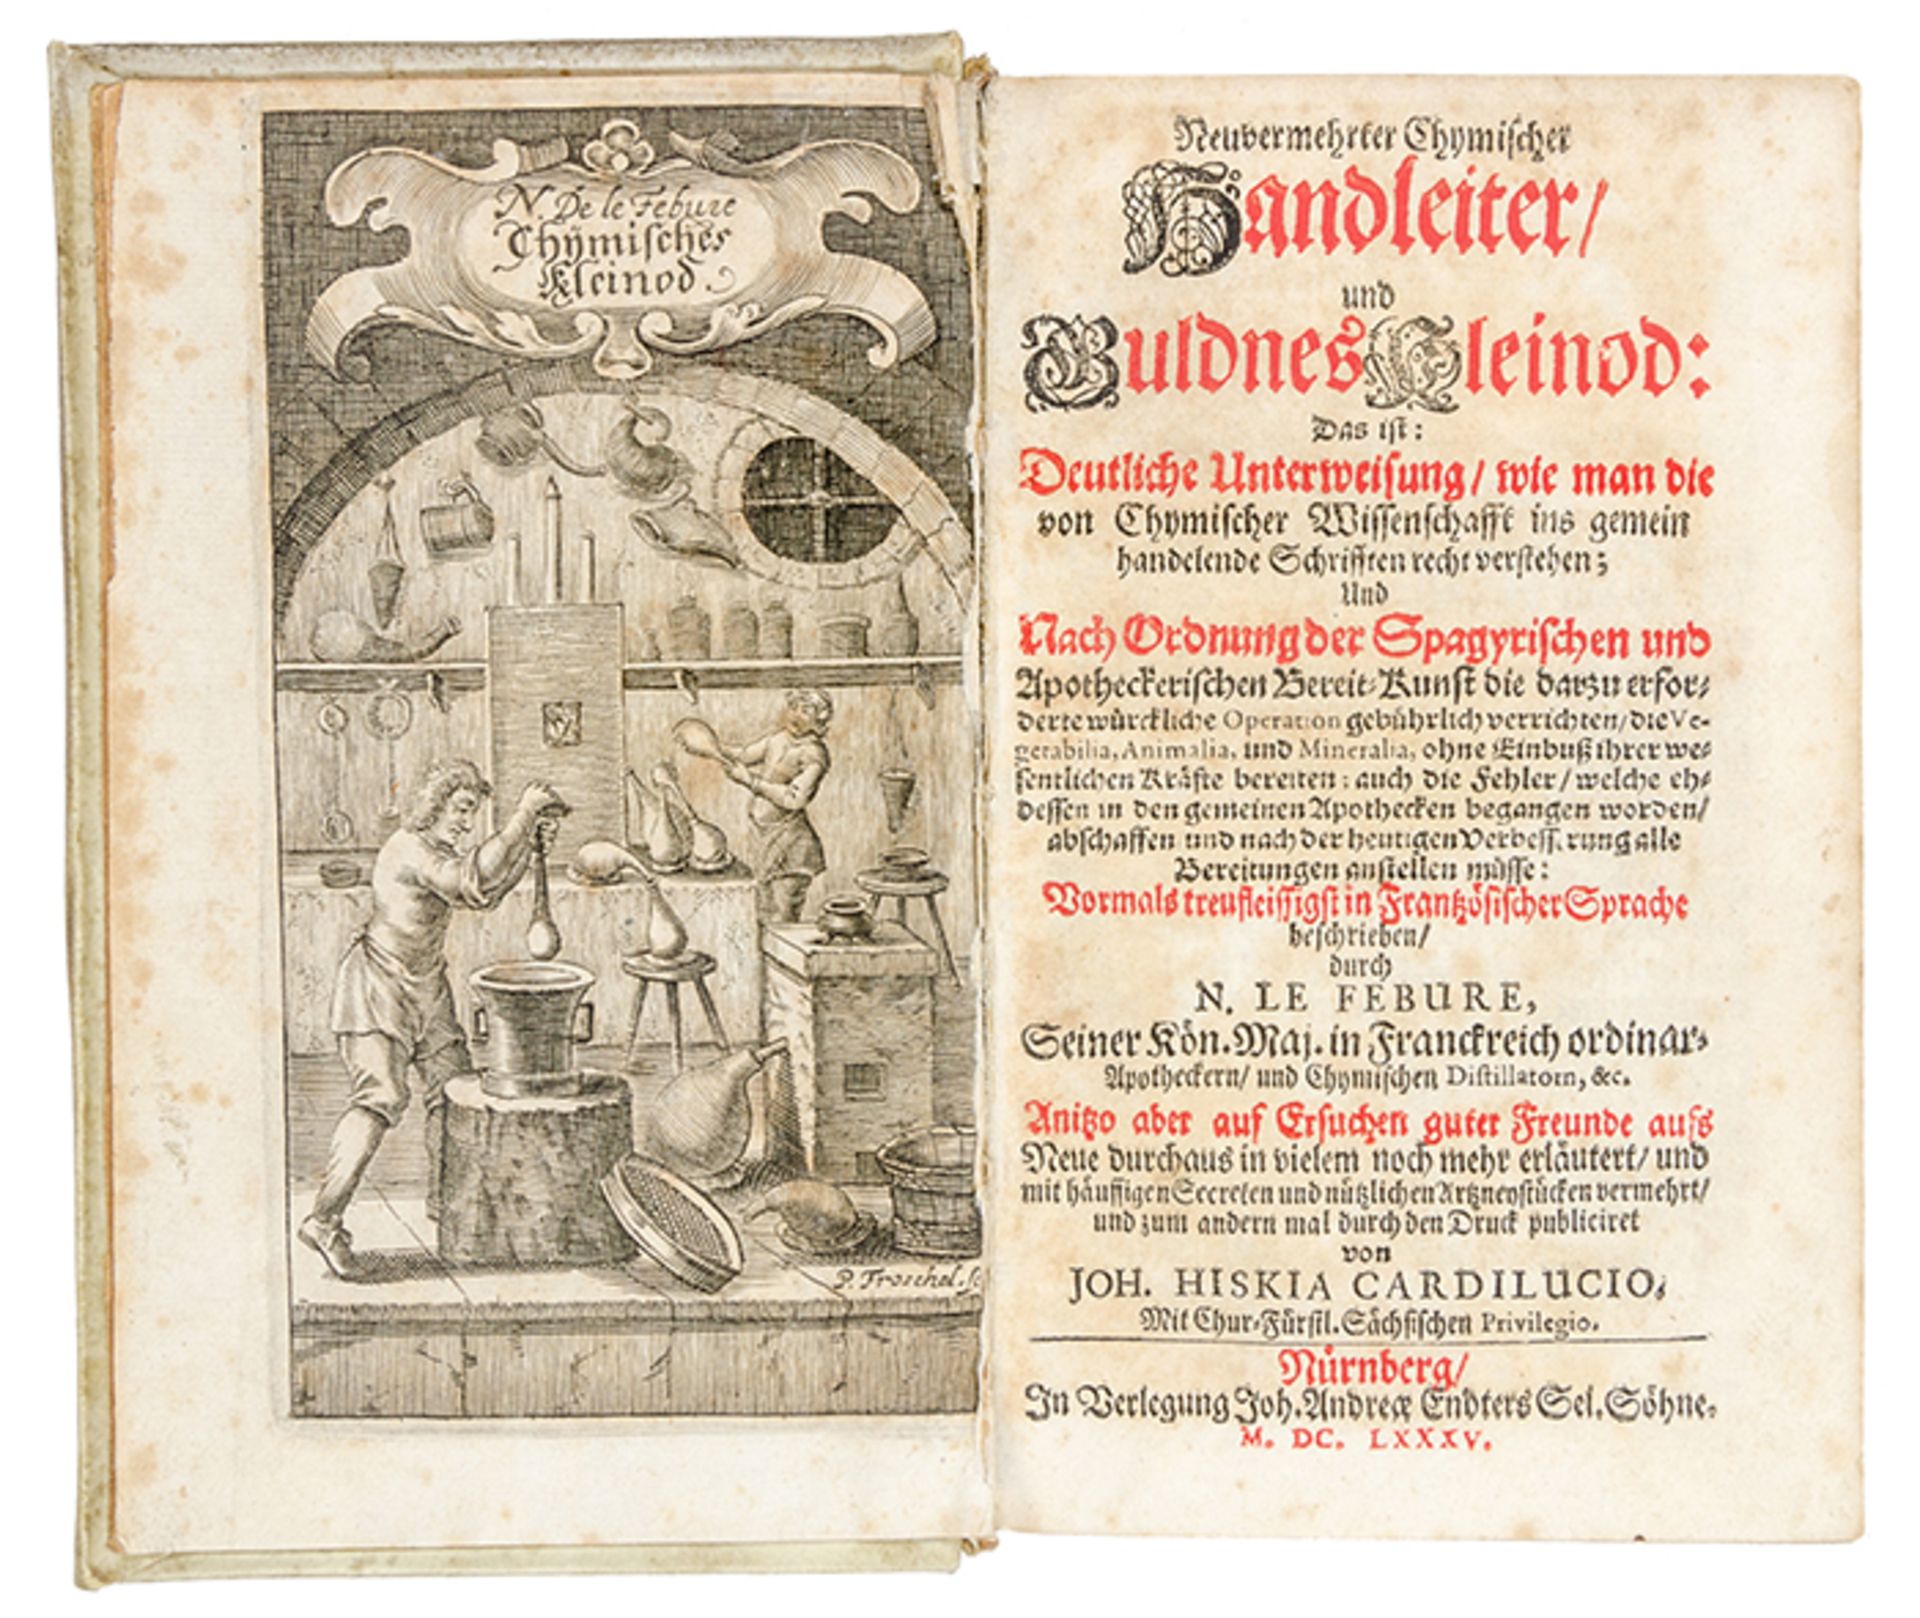 N. De le Febure
Chymisches
Kleinod.
P. Troschel. sc
Neuvermehrter Chymischer
Handleiter/
und
Guldnes Kleinod:
Das ist:
Deutliche Unterweisung/ wie man die
von Chymischer Wissenschafft ins gemein
handelende Schrifften recht verstehen;
Und
Nach Ordnung der Spagyrischen und
Apotheckerischen Bereit-Kunst die darzu erfor-
derte würckliche Operation gebührlich verrichten/ die Ve-
getabilia, Animalia, und Mineralia, ohne Einbuß ihrer we-
sentlichen Kräfte bereiten: auch die Fehler/ welche eh-
dessen in den gemeinen Apothecken begangen worden/
abschaffen und nach der heutigen Verbesserung alle
Bereitungen anstellen müsse:
Vormals treufleissigst in Frantzösischer Sprache
beschrieben/
durch
N. LE FEBURE,
Seiner Kön. Maj. in Franckreich ordinar-
Apotheckern/ und Chymischen Distillatorn, &c.
Anitzo aber auf Ersuchen guter Freunde aufs
Neue durchaus in vielem noch mehr erläutert/ und
mit häuffigen Secreten und nützlichen Artzneystücken vermehrt/
und zum andern mal durch den Druck publiciret
von
JOH. HISKIA CARDILUCIO,
Mit Chur-Fürstl. Sächsischen Privilegio.
Nürnberg/
In Verlegung Joh. Andreæ Endters Sel. Söhne.
M. DC. LXXXV.